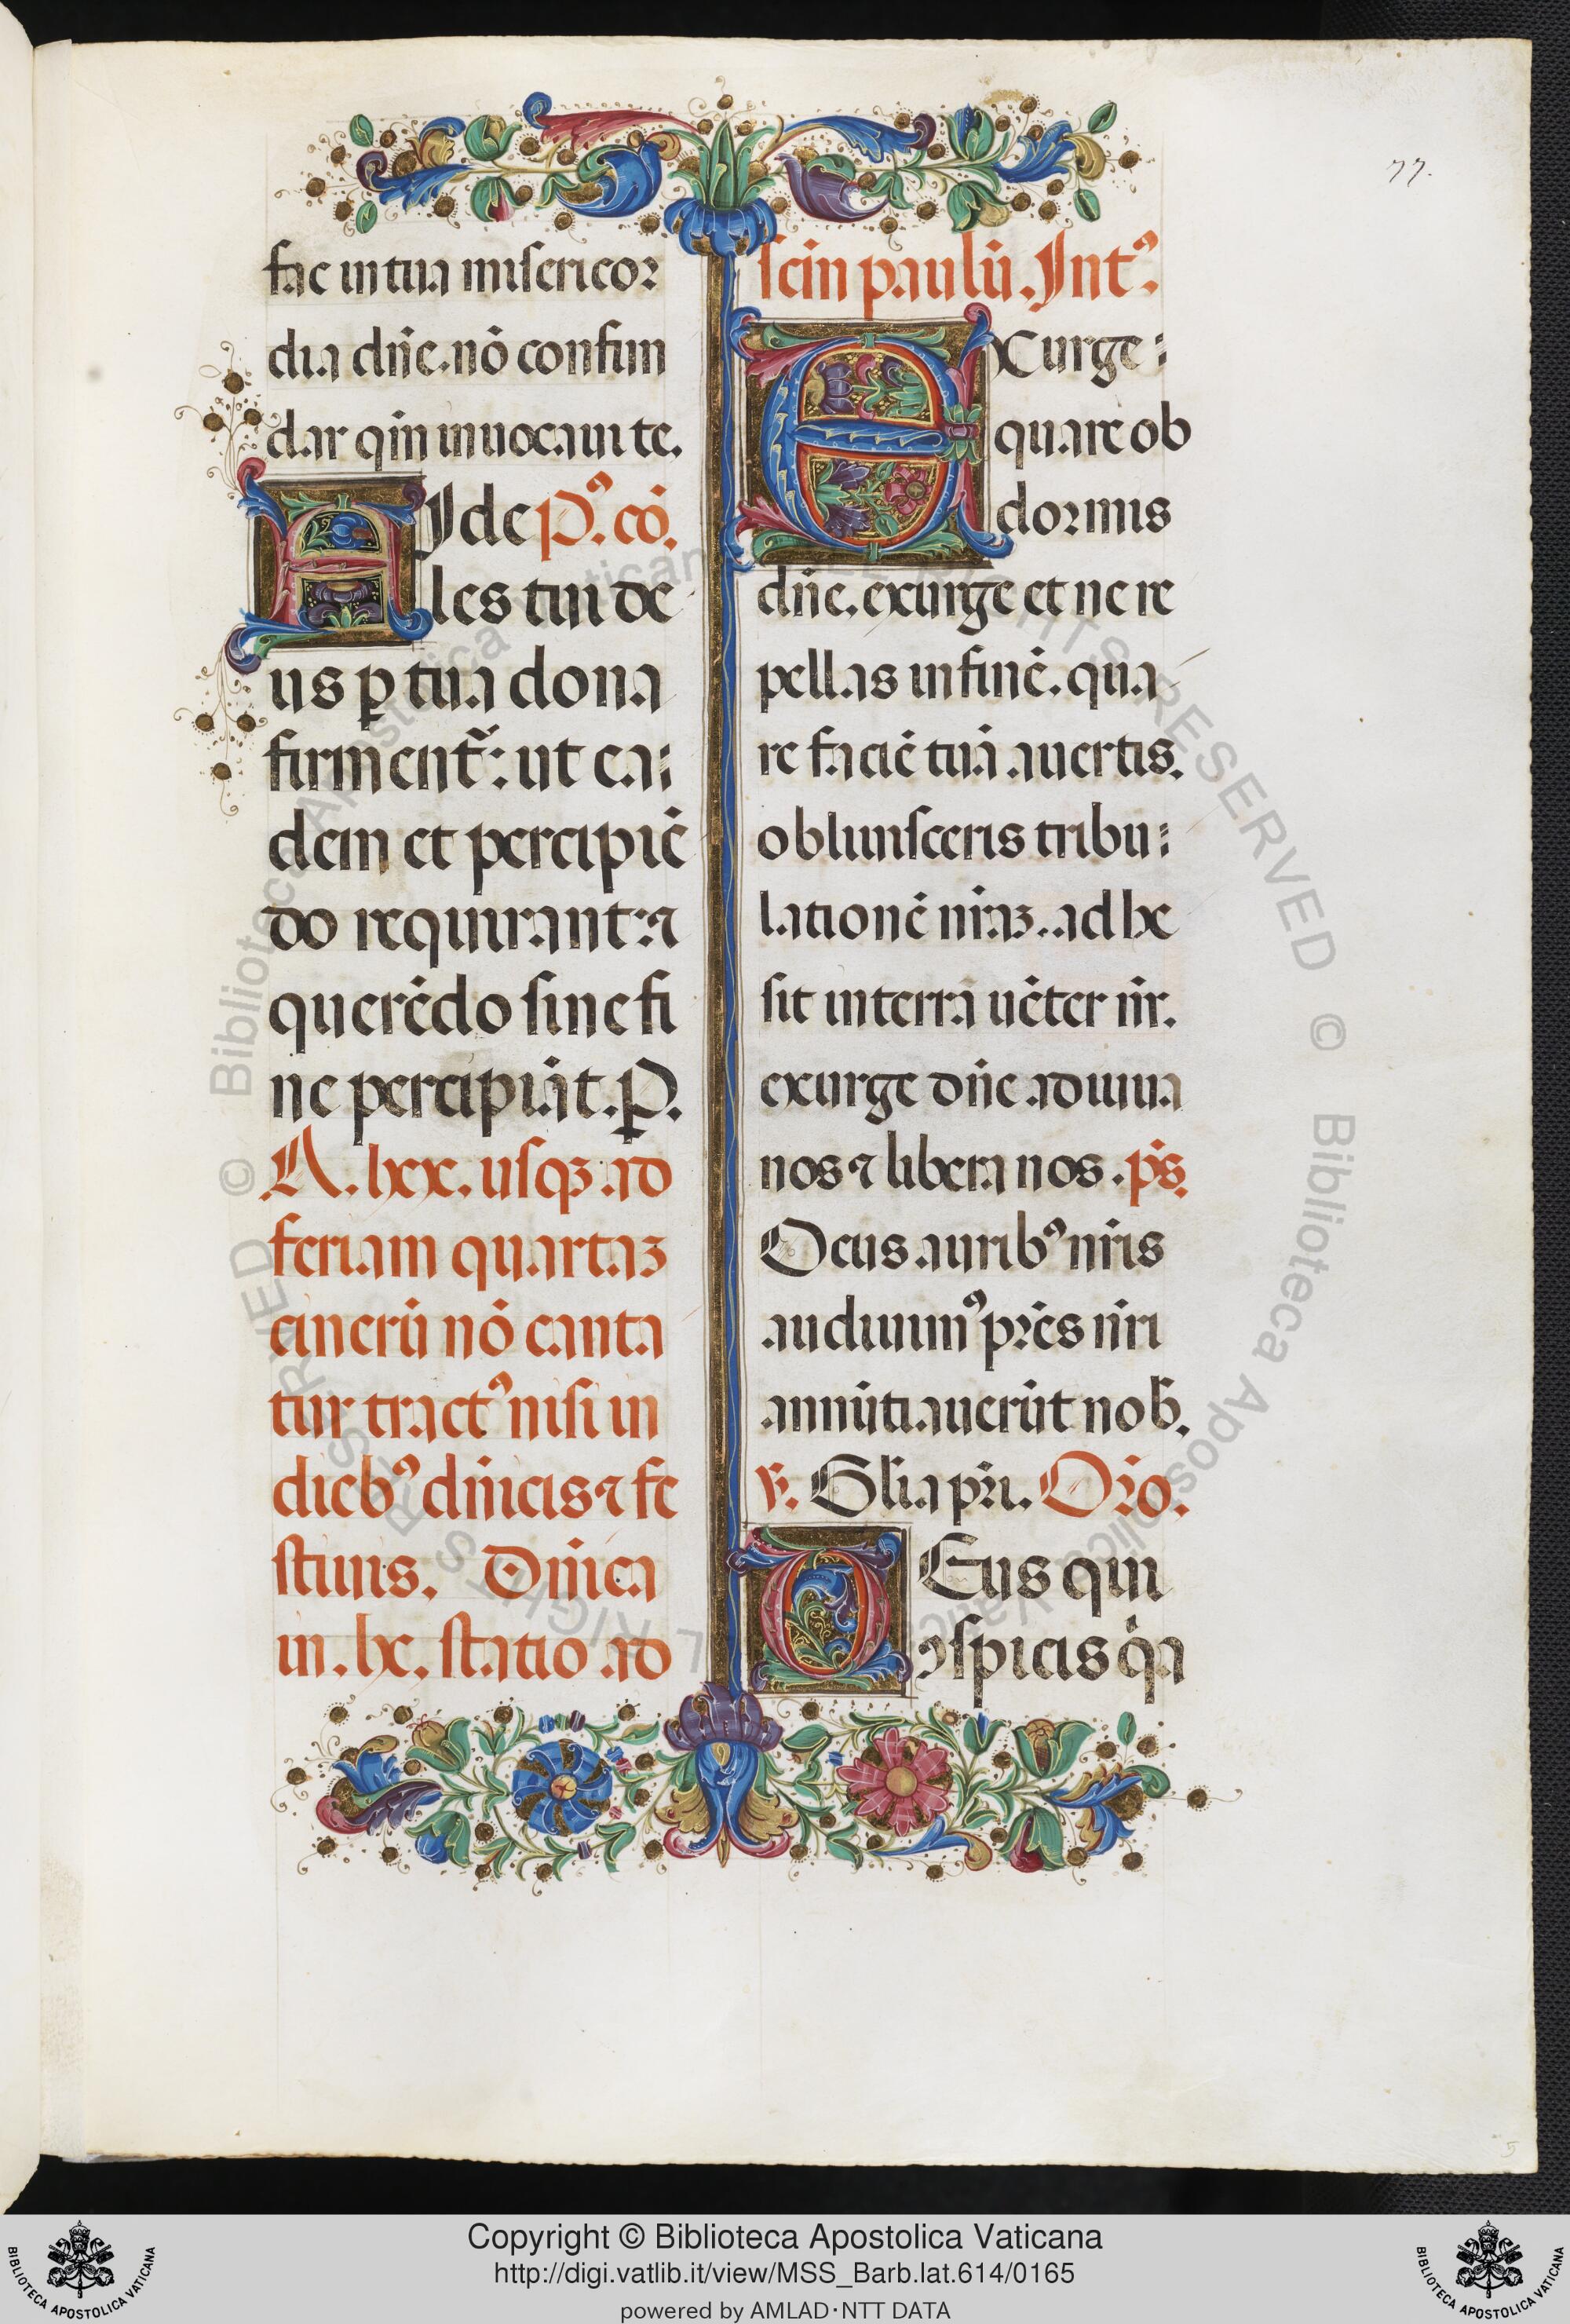 77.
fac in tua misericor
dia dñe. nō confun
dar qm̄ inuocaui te.
FIde Pꝰ. cō.
les tui de
us ꝑ tua dona
firment᷑: ut ea:
dem et percipiē
do requirant: ⁊
querēdo sine fi
ne percipiāt. P̱.
A. lxx. usqꝫ ad
feriam quartaꝫ
cinerū nō canta
tur tractꝰ nisi in
diebꝰ dñicis ⁊ fe
stiuis. Dñica
in. lx. statio ad
scm̄ paulū. Intꝰ.
EXurge:
quare ob
dormis
dñe. exurge et ne re
pellas in finē. qua
re faciē tuā auertis.
obliuisceris tribu:
lationē nr̄aꝫ. adhe
sit in terra uēter nr̄.
exurge dñe adiuua
nos ⁊ libera nos. p̄s.
Deus auribꝰ nr̄is
audiuimꝰ pr̄es nr̄i
annūtiauerūt nob̄.
℣. Glia pr̄i. Or̄o.
DEus qui
ꝯspicis q̄a
© Biblioteca Apostolica Vaticana
ALL RIGHTS RESERVED
Copyright © Biblioteca Apostolica Vaticana
http://digi.vatlib.it/view/MSS_Barb.lat.614/0165
powered by AMLAD·NTT DATA
BIBLIOTECA APOSTOLICA VATICANA
BIBLIOTECA APOSTOLICA VATICANA